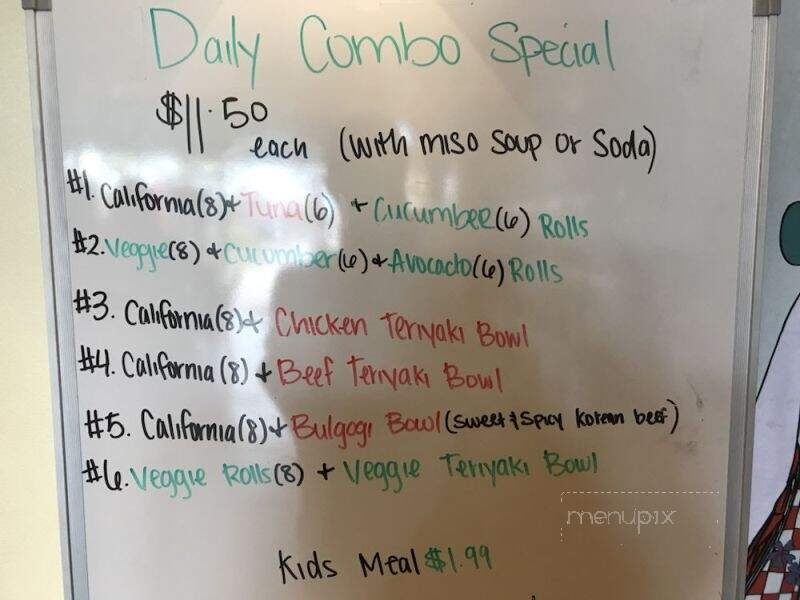 Daily Combo Special
$11.50
each (with miso soup or soda)
#1. California(8)+Tuna(6) + Cucumber(6) Rolls
#2. Veggie(8) + Cucumber(6) + Avocado(6) Rolls
#3. California(8)+ Chicken Teriyaki Bowl
#4. California (8) + Beef Teriyaki Bowl
#5. California(8)+ Bulgogi Bowl (sweet & spicy Korean beef)
#6. Veggie Rolls(8) + Veggie Teriyaki Bowl
menupix
Kids Meal $1.99